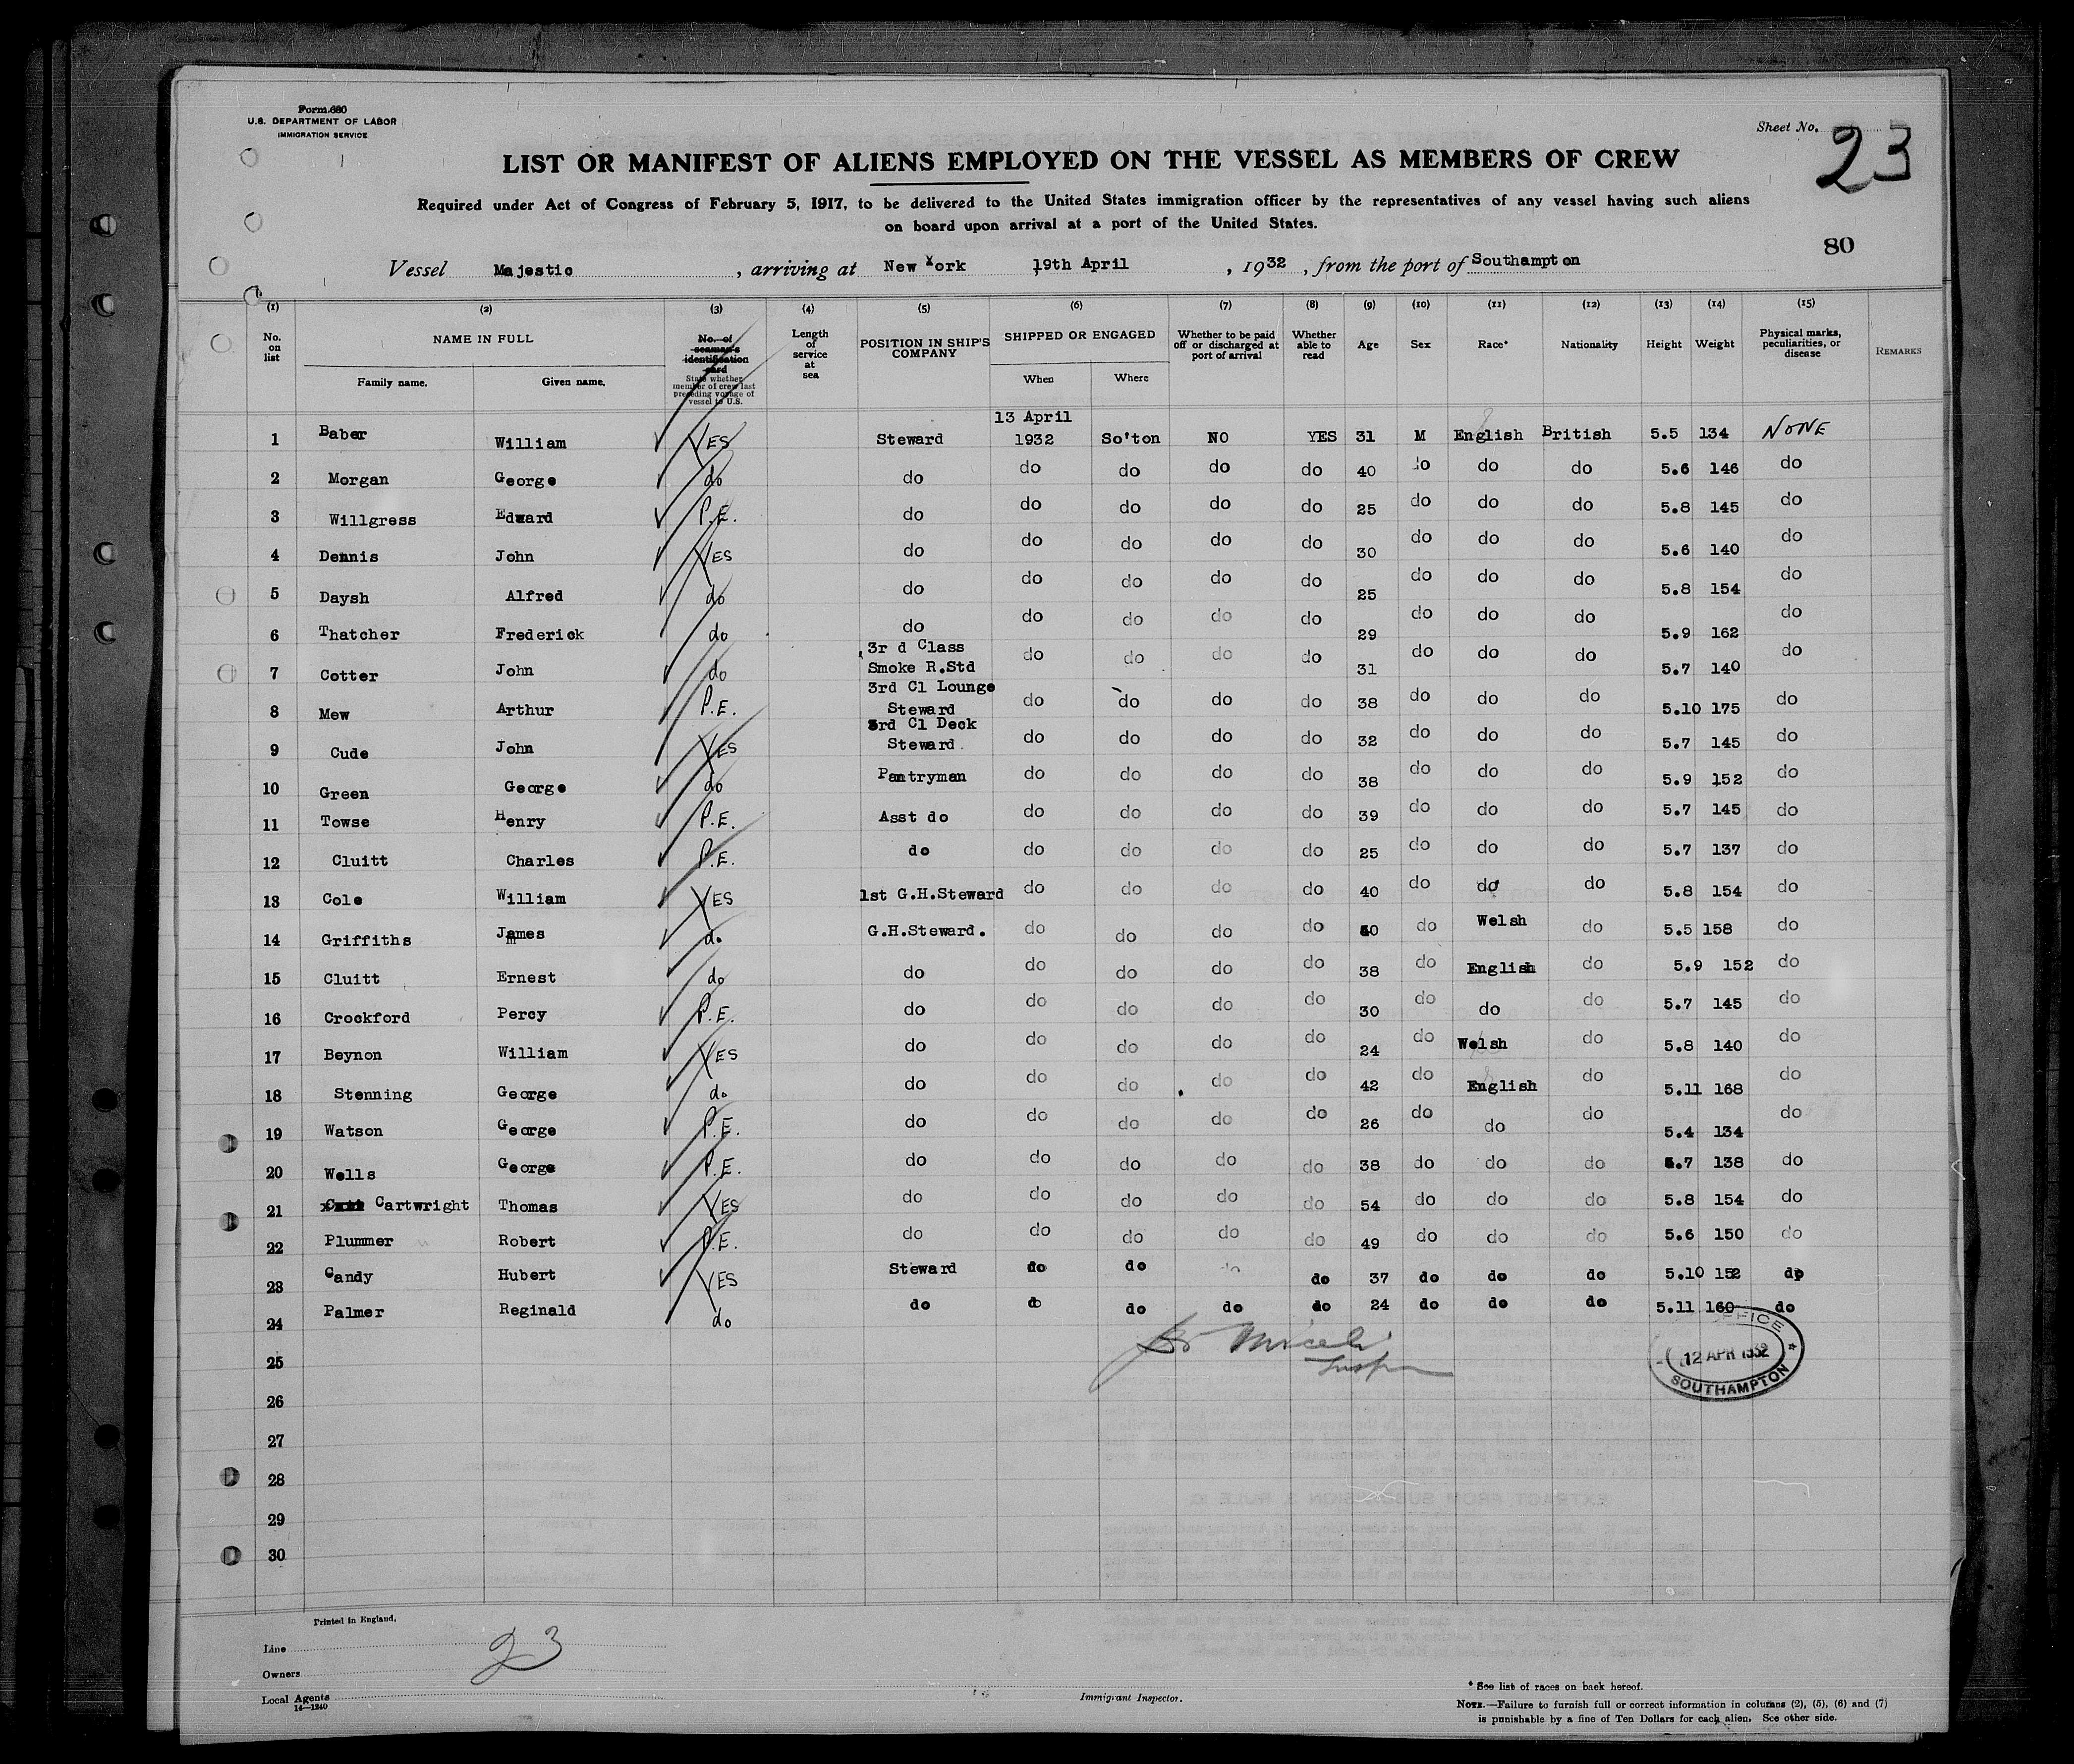 Form 680
U.S. DEPARTMENT OF LABOR
IMMIGRATION SERVICE
Sheet No. 23
LIST OR MANIFEST OF ALIENS EMPLOYED ON THE VESSEL AS MEMBERS OF CREW
Required under Act of Congress of February 5, 1917, to be delivered to the United States immigration officer by the representatives of any vessel having such aliens
on board upon arrival at a port of the United States.
80
Vessel Majestic, arriving at New York 19th April, 1932, from the port of Southampton
(1) (2) (3) (4) (5) (6) (7) (8) (9) (10) (11) (12) (13) (14) (15)
No. on list NAME IN FULL Family name. Given name. No. of seaman's identification card State whether member of crew last preceding voyage of vessel to U.S. Length of service at sea POSITION IN SHIP'S COMPANY SHIPPED OR ENGAGED When Where Whether to be paid off or discharged at port of arrival Whether able to read Age Sex Race* Nationality Height Weight Physical marks, peculiarities, or disease REMARKS
1 Baber William YES Steward 13 April 1932 So'ton NO YES 31 M English British 5.5 134 NONE
2 Morgan George do do do do do do 40 do do do 5.6 146 do
3 Willgress Edward P.E. do do do do do 25 do do do 5.8 145 do
4 Dennis John YES do do do do do 30 do do do 5.6 140 do
5 Daysh Alfred do do do do do do 25 do do do 5.8 154 do
6 Thatcher Frederick do do do do do do 29 do do do 5.9 162 do
7 Cotter John do 3rd Class Smoke R.Std do do do do 31 do do do 5.7 140 do
8 Mew Arthur P.E. 3rd Cl Lounge Steward do do do do 38 do do do 5.10 175 do
9 Cude John YES 3rd Cl Deck Steward do do do do 32 do do do 5.7 145 do
10 Green George do Pantryman do do do do 38 do do do 5.9 152 do
11 Towse Henry P.E. Asst do do do do do 39 do do do 5.7 145 do
12 Cluitt Charles P.E. do do do do do 25 do do do 5.7 137 do
13 Cole William YES 1st G.H.Steward do do do do 40 do do do 5.8 154 do
14 Griffiths James do G.H.Steward. do do do do 40 do Welsh do 5.5 158 do
15 Cluitt Ernest do do do do do do 38 do English do 5.9 152 do
16 Crockford Percy P.E. do do do do do 30 do do do 5.7 145 do
17 Beynon William YES do do do do do 24 do Welsh do 5.8 140 do
18 Stenning George do do do do do do 42 do English do 5.11 168 do
19 Watson George P.E. do do do do do 26 do do do 5.4 134 do
20 Wells George P.E. do do do do do 38 do do do 5.7 138 do
21 Cartwright Thomas YES do do do do do 54 do do do 5.8 154 do
22 Plummer Robert P.E. do do do do do 49 do do do 5.6 150 do
23 Candy Hubert YES Steward do do do do 37 do do do 5.10 152 do
24 Palmer Reginald do do do do do do 24 do do do 5.11 160 do
25
26
27
28
29
30
OFFICE
12 APR 1932
SOUTHAMPTON
Printed in England.
Line
Owners
23
Local Agents
14—1240
Immigrant Inspector.
* See list of races on back hereof.
NOTE.—Failure to furnish full or correct information in columns (2), (5), (6) and (7)
is punishable by a fine of Ten Dollars for each alien. See other side.